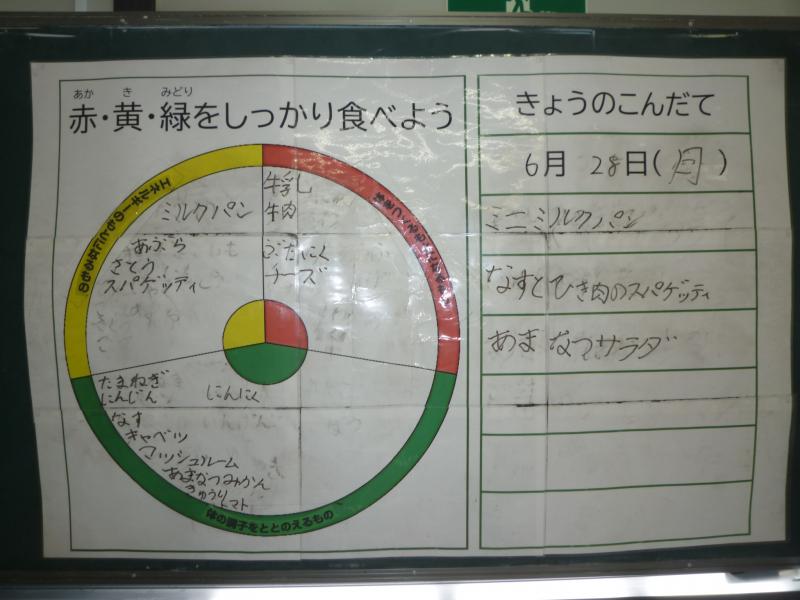 あか き みどり
赤・黄・緑をしっかり食べよう
エネルギーのもとになるもの
ミルクパン
あぶら
さとう
スパゲッティ
牛乳
牛肉
ぶたにく
チーズ
たまねぎ
にんじん
にんにく
なす
キャベツ
マッシュルーム
あまなつみかん
きゅうり
トマト
体の調子をととのえるもの
きょうのこんだて
6月 28日(月)
ミニミルクパン
なすとひき肉のスパゲッティ
あまなつサラダ